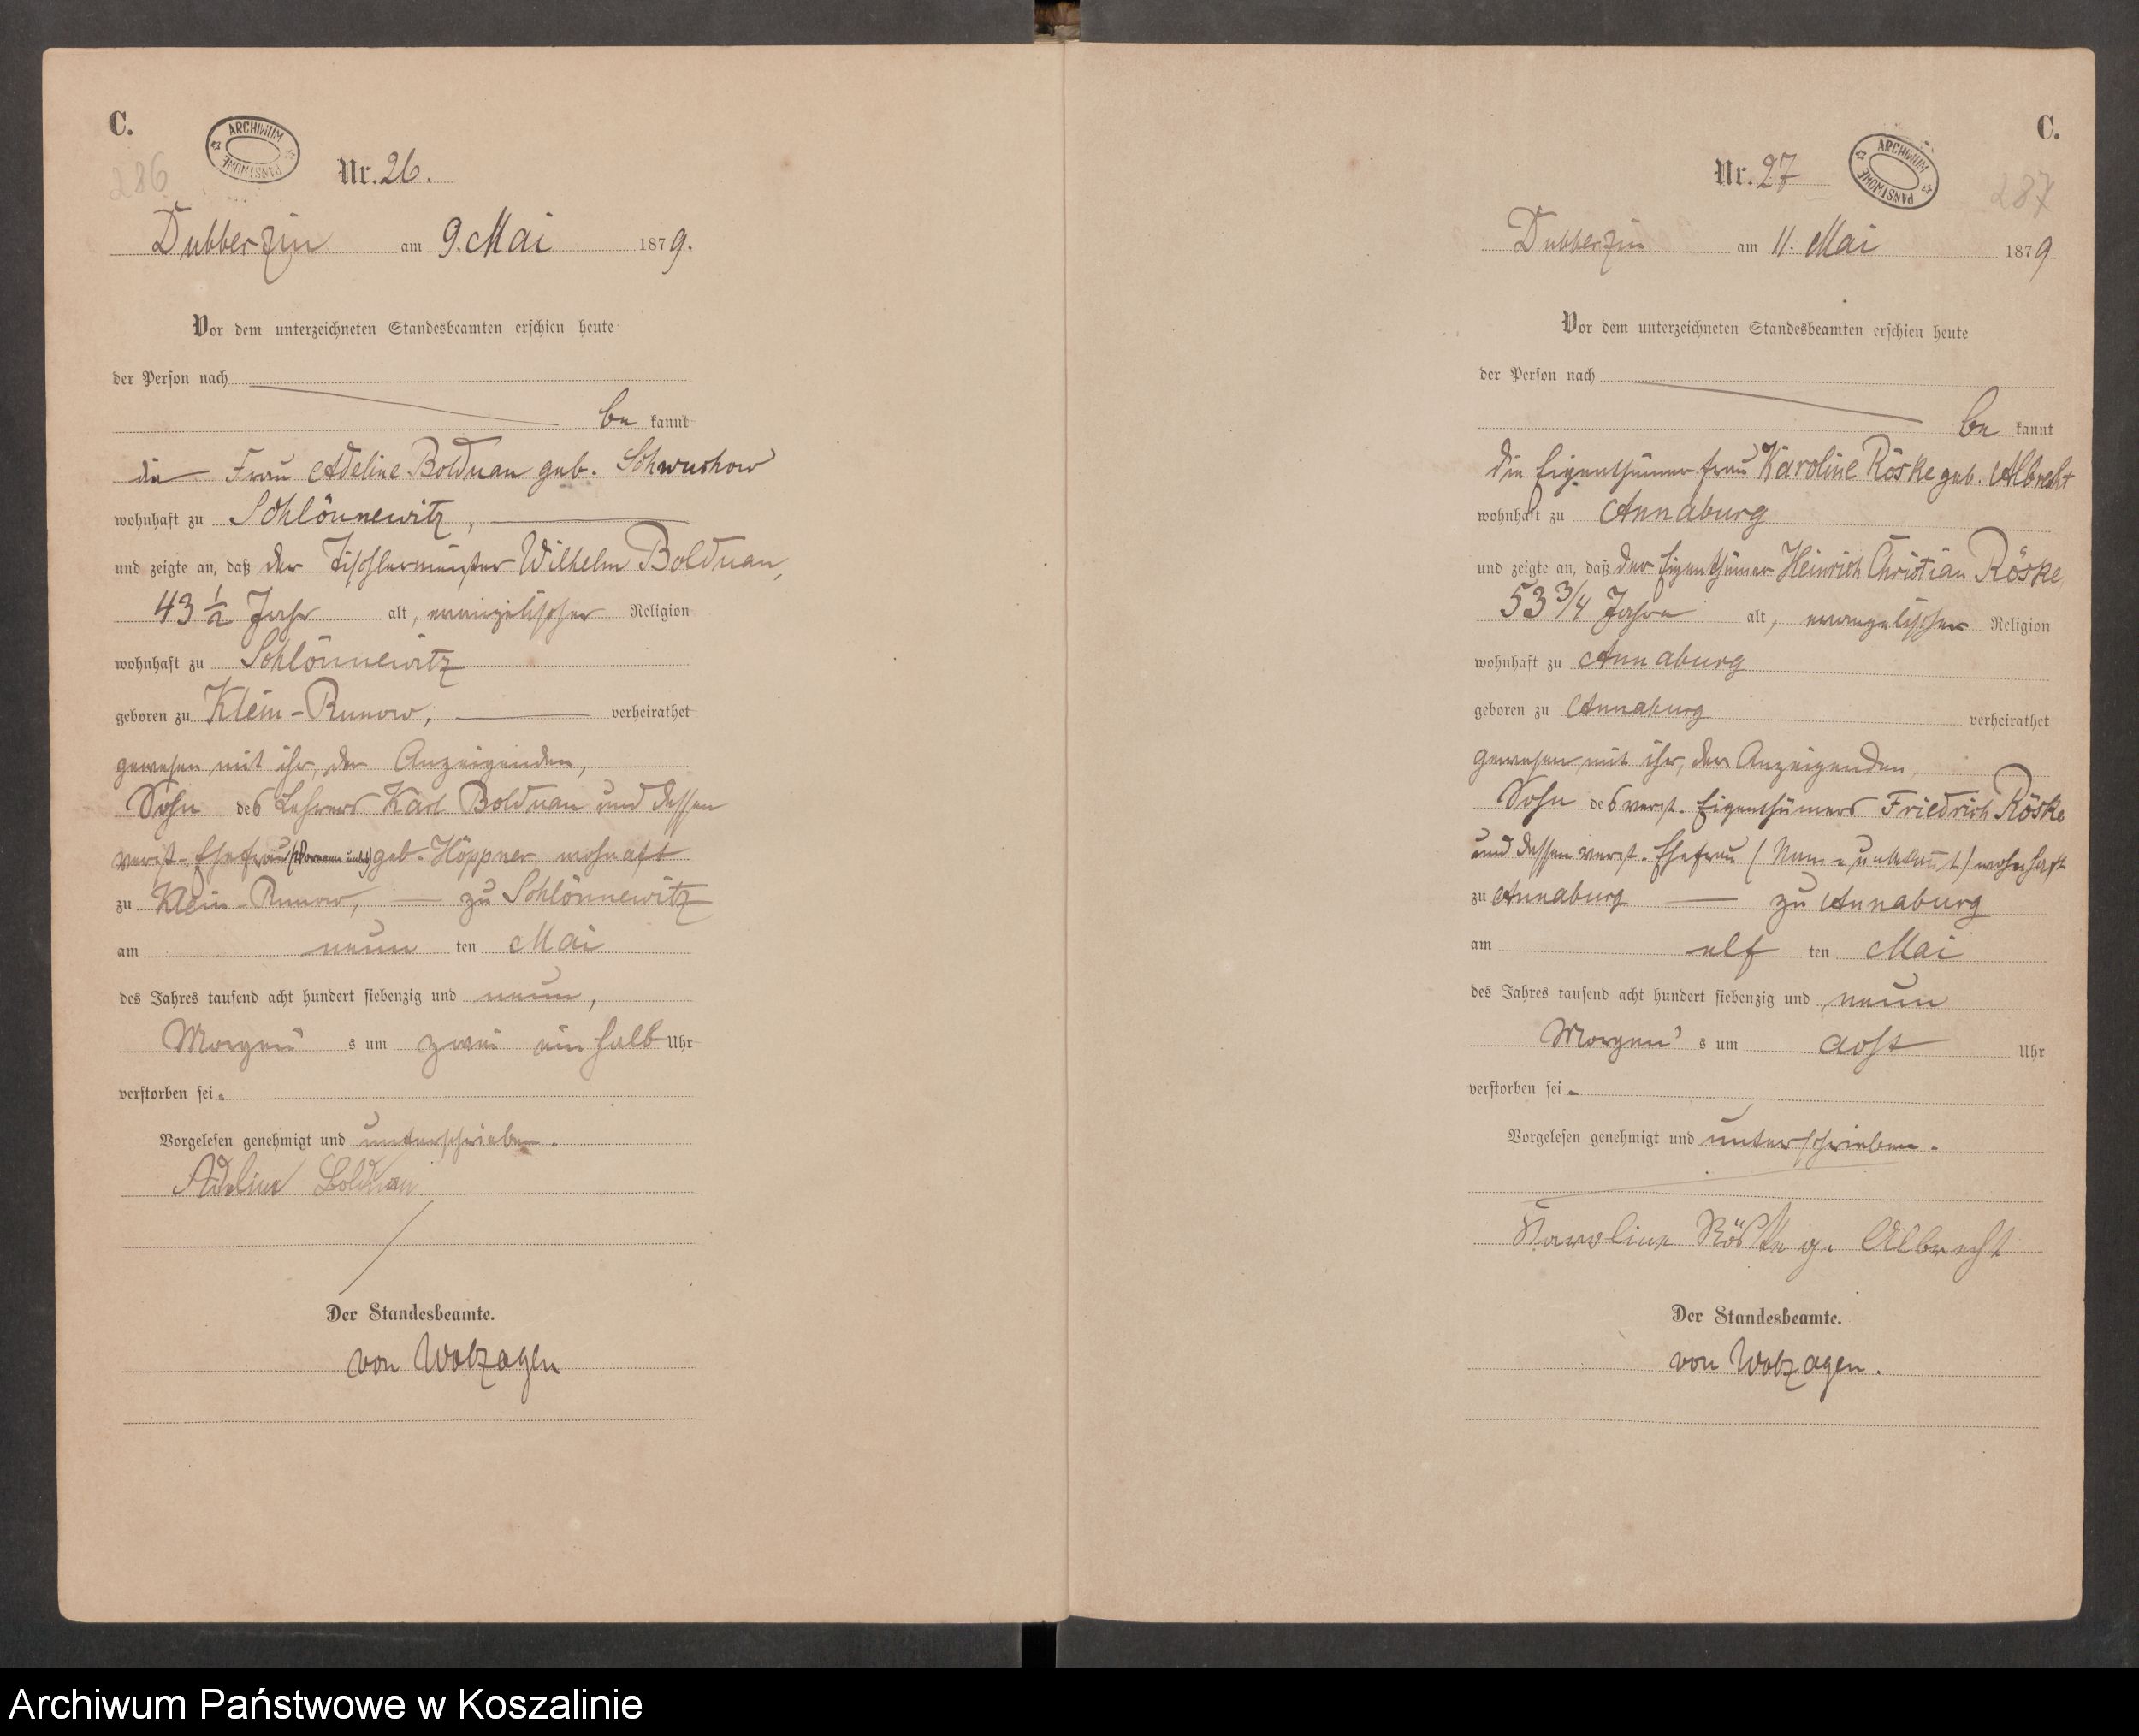 C.
286
ARCHIWUM PAŃSTWOWE
Nr. 26.
Dubberzin am 9. Mai 1879.
Vor dem unterzeichneten Standesbeamten erschien heute
der Person nach
be kannt
die Frau Adeline Bolduan geb. Schwuchow
wohnhaft zu Schlönnewitz,
und zeigte an, daß der Tischlermeister Wilhelm Bolduan,
43 1/2 Jahr alt, evangelischer Religion
wohnhaft zu Schlönnewitz
geboren zu Klein-Runow, verheirathet
gewesen mit ihr, der Anzeigenden,
Sohn des Lehrers Karl Bolduan und dessen
verst. Ehefrau (Vorname unbek) geb. Höppner wohnaft
zu Klein-Runow, zu Schlönnewitz
am neun ten Mai
des Jahres tausend acht hundert siebenzig und neun,
Morgen s um zwei ein halb Uhr
verstorben sei.
Vorgelesen genehmigt und unterschrieben.
Adeline Bolduan
Der Standesbeamte.
von Wolzogen
C.
287
ARCHIWUM PAŃSTWOWE
Nr. 27
Dubberzin am 11. Mai 1879
Vor dem unterzeichneten Standesbeamten erschien heute
der Person nach
be kannt
die Eigenthümer frau Karoline Röske geb. Albrecht
wohnhaft zu Annaburg
und zeigte an, daß der Eigenthümer Heinrich Christian Röske
53 3/4 Jahre alt, evangelischer Religion
wohnhaft zu Annaburg
geboren zu Annaburg verheirathet
gewesen mit ihr, der Anzeigenden,
Sohn des verst. Eigenthümers Friedrich Röske
und dessen verst. Ehefrau (Name unbekannt) wohnhaft
zu Annaburg zu Annaburg
am elf ten Mai
des Jahres tausend acht hundert siebenzig und neun
Morgen s um acht Uhr
verstorben sei.
Vorgelesen genehmigt und unterschrieben.
Karoline Röske g. Albrecht
Der Standesbeamte.
von Wolzogen.
Archiwum Państwowe w Koszalinie